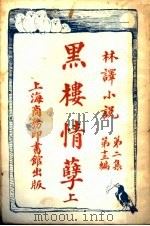 林譯小說
第二集
第十三編
黑樓情孽 上
上海商務印書館出版